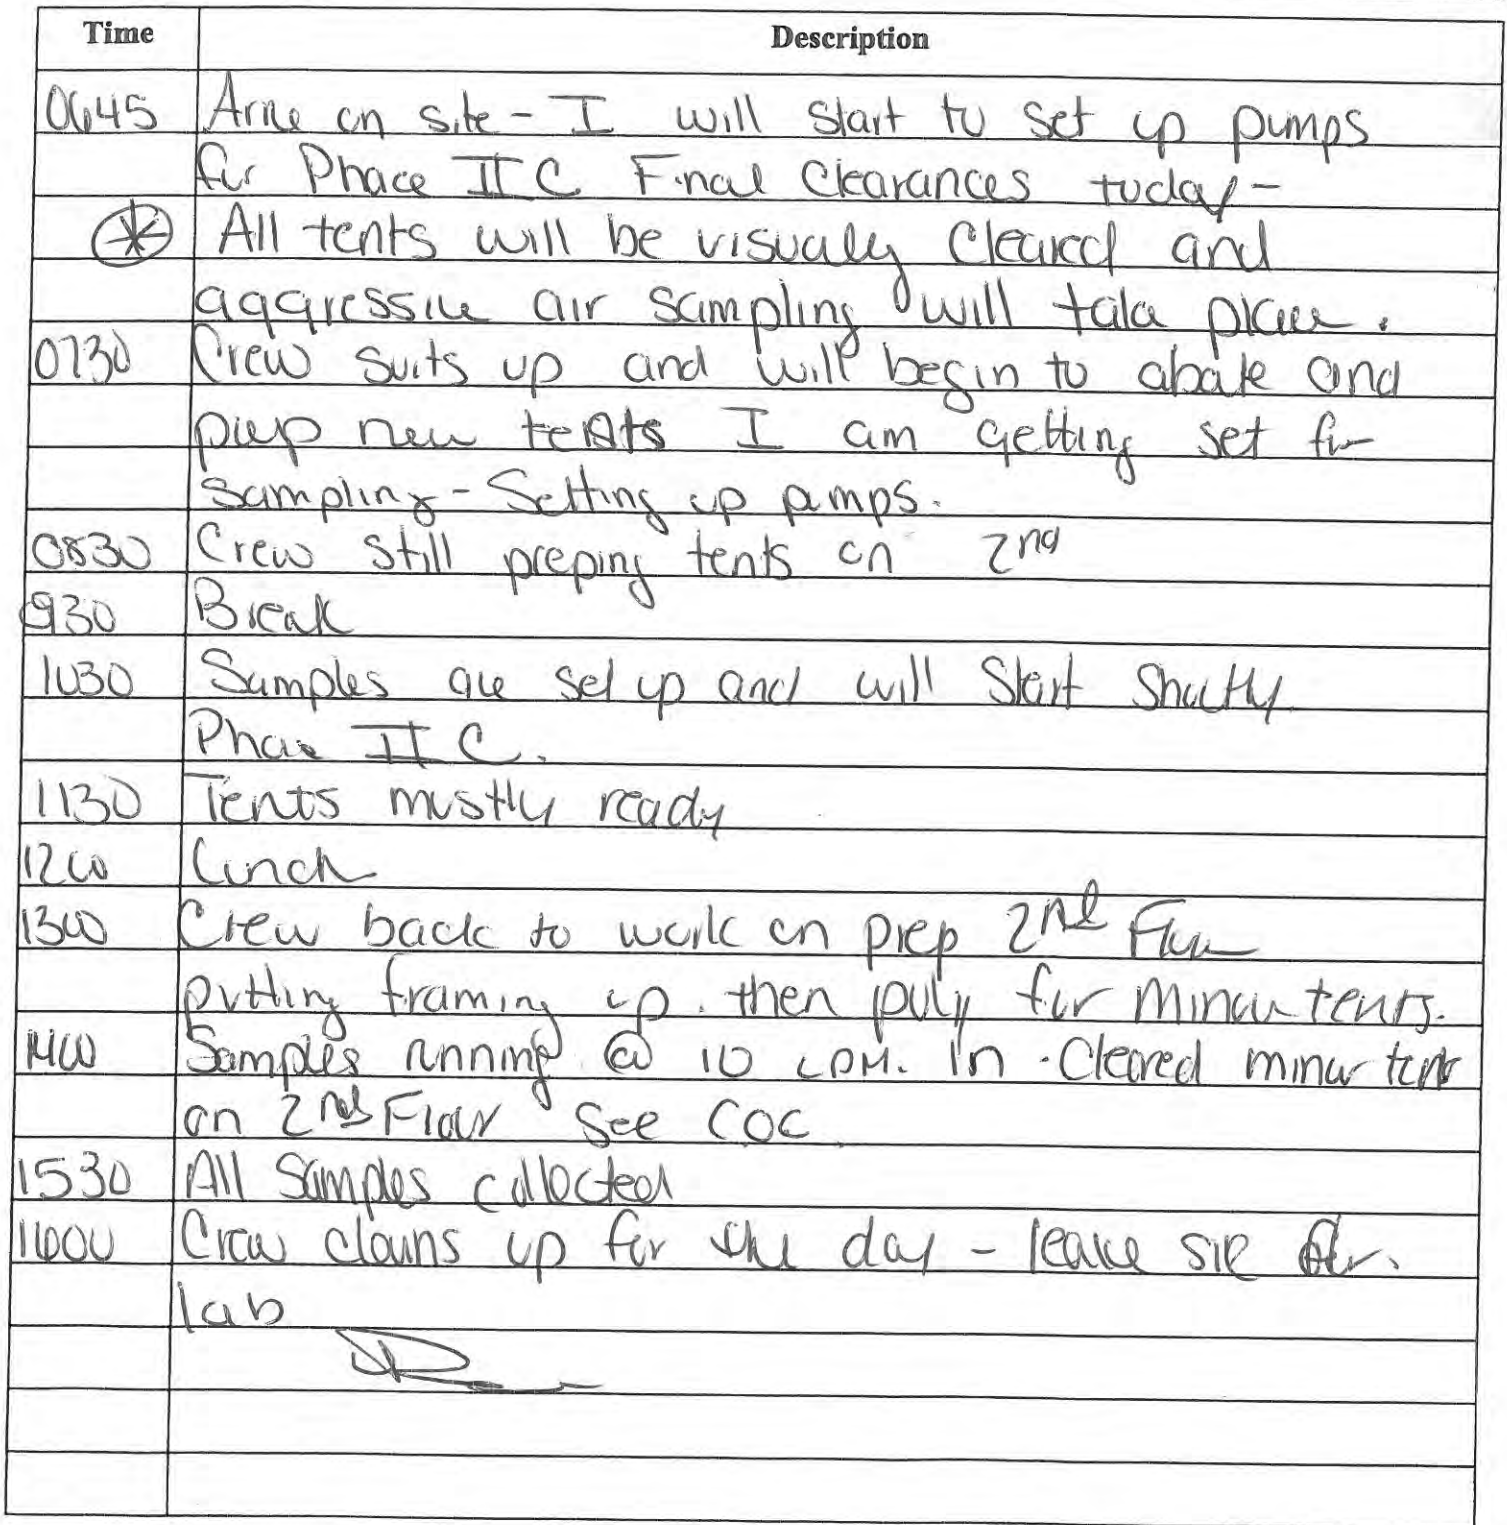 Time Description
0645 Arrive on site - I will start to set up pumps
for Phase II C Final Clearances today -
* All tents will be visualy Cleared and
aggressive air sampling will take place.
0730 Crew suits up and will begin to abate and
prep new tents I am getting set for
sampling - Setting up pumps.
0830 Crew still preping tents on 2nd
930 Break
1030 Samples are set up and will Start Shortly
Phase II C.
1130 Tents mostly ready
1200 Lunch
1300 Crew back to work on prep 2nd Floor
putting framing up. then poly for minor tents.
1400 Samples running @ 10 LPM. in Cleared minor tents
on 2nd Floor See COC
1530 All Samples collected
1600 Crew cleans up for the day - leave site for
lab